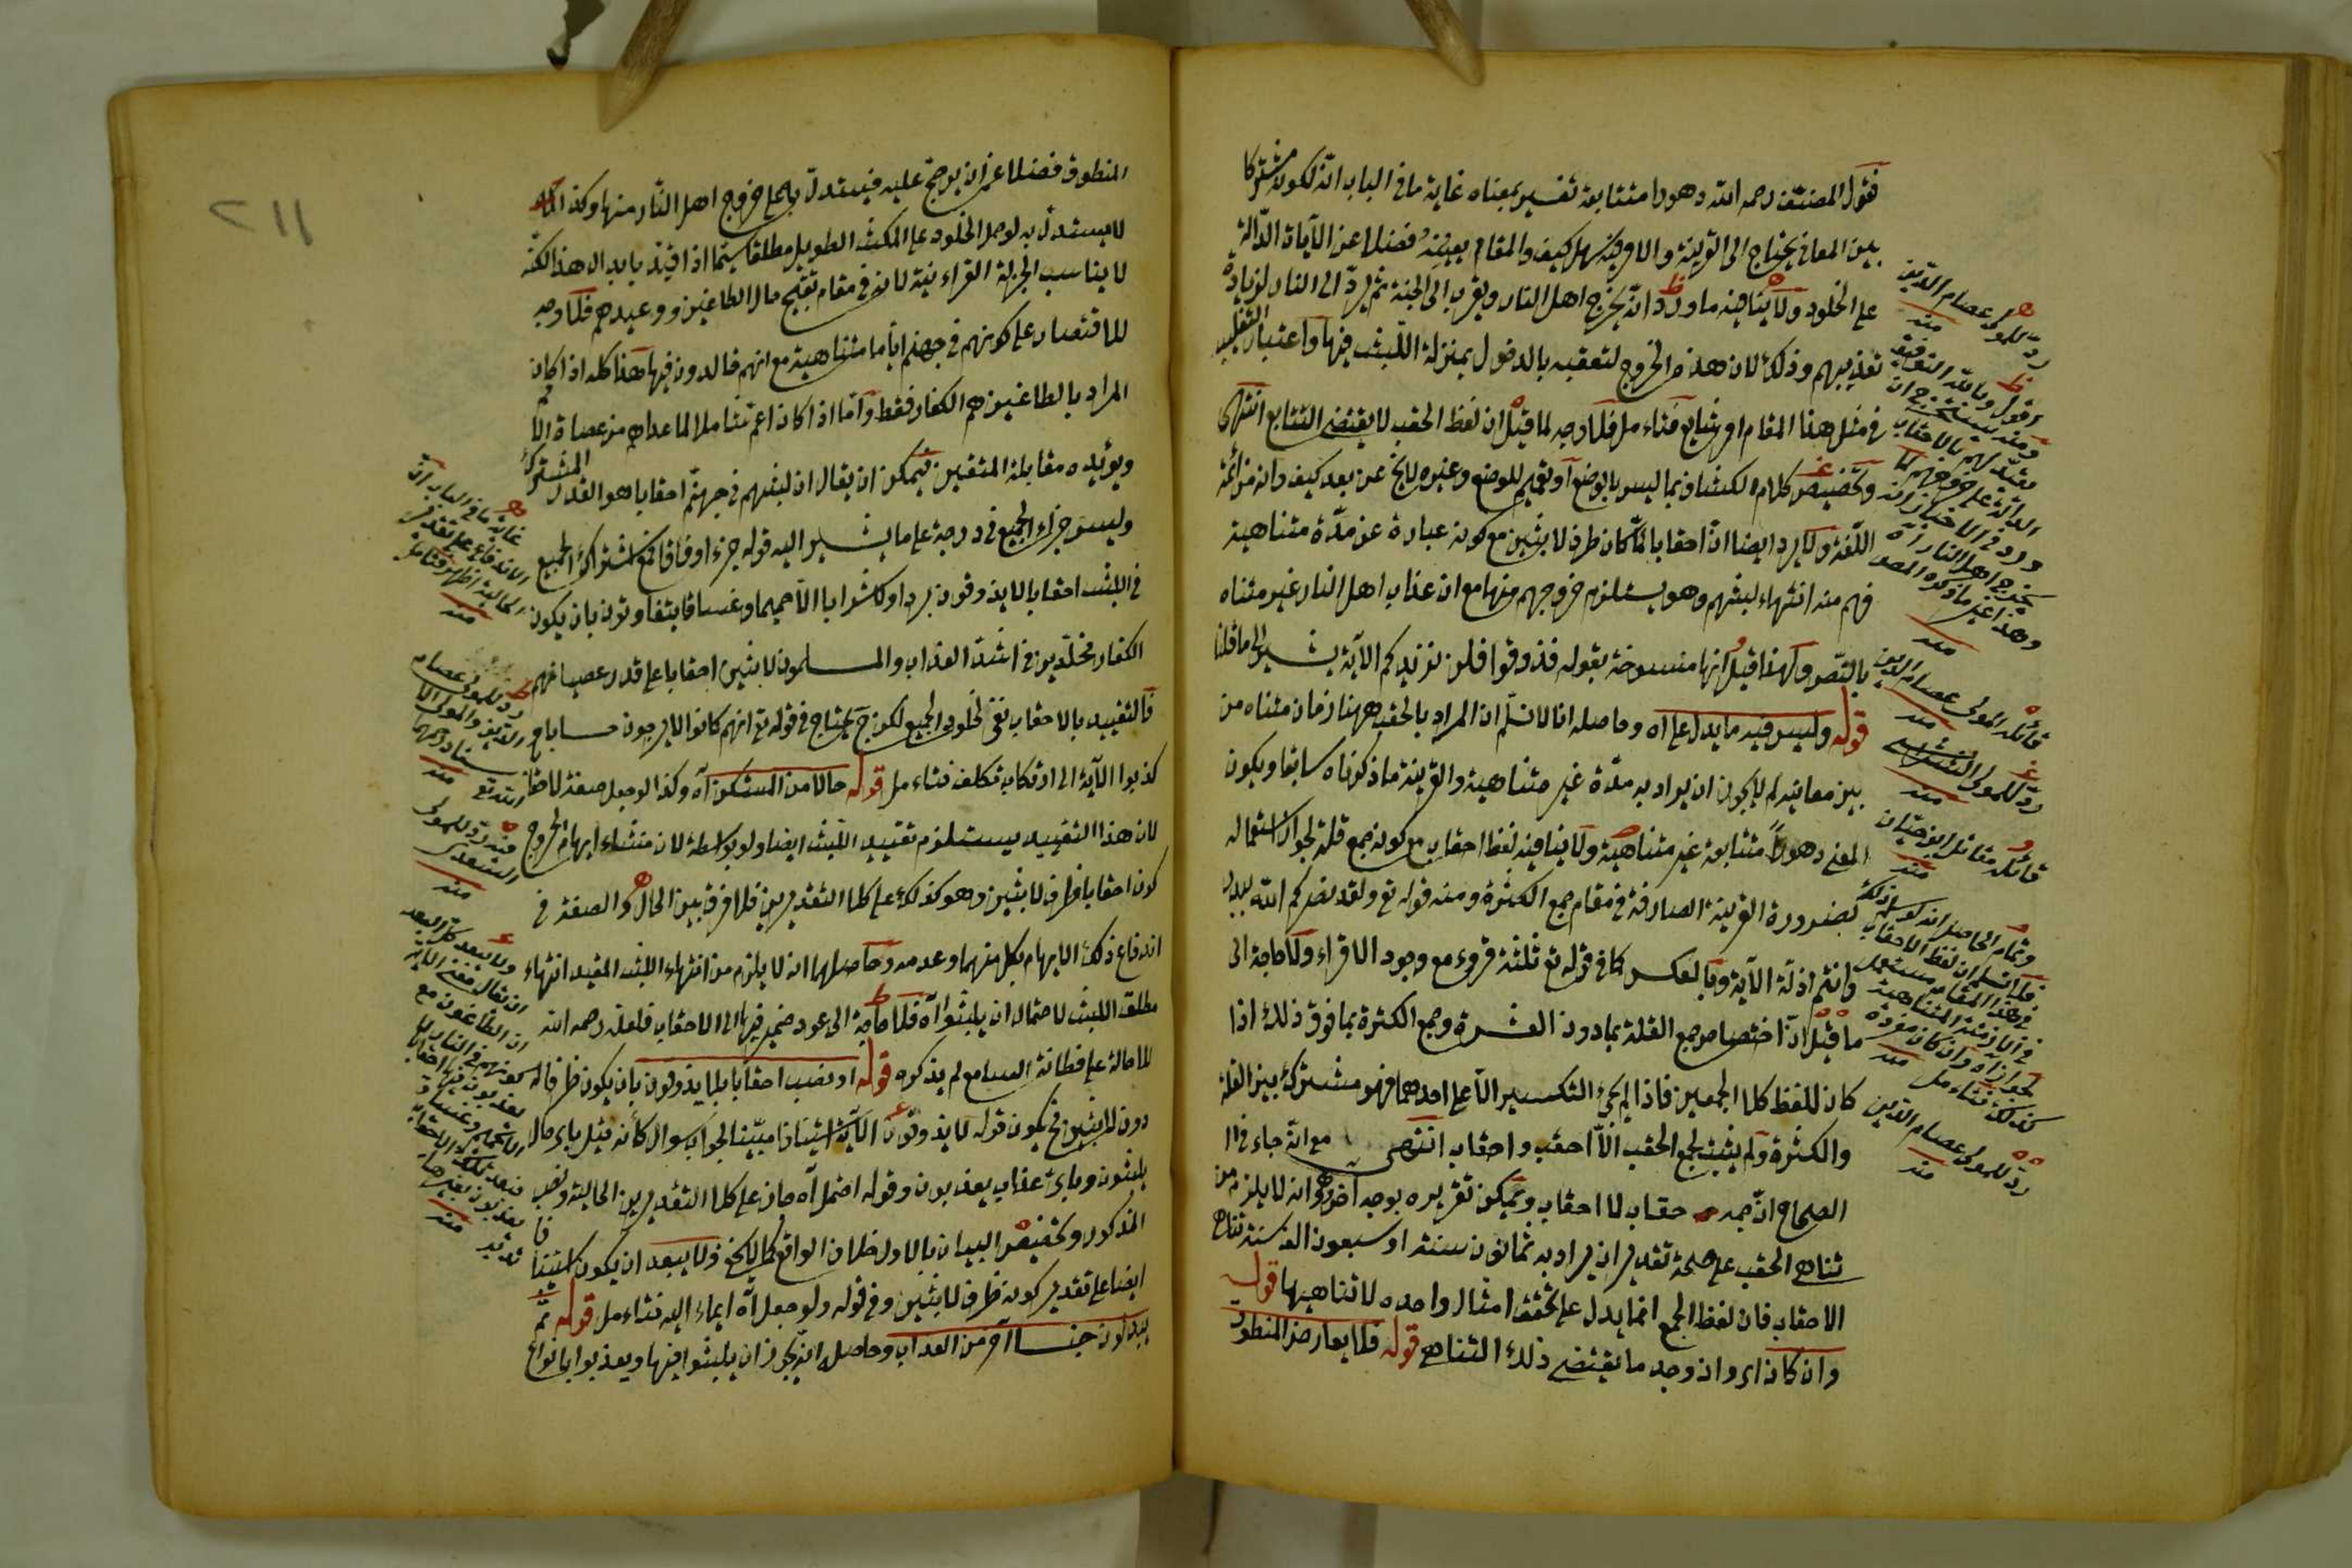 فقول المصنف رحمه الله دهورا متتابعة تفسير بمعناه غاية ما في الباب انه لكونه مشتركا
بين المعاني يحتاج الى القرينة والامر فيه سهل كيف والمقام يعينه فضلا عن الآيات الدالة
على الخلود ولا ينافيه ما ورد انه يخرج اهل النار ويقرب الى الجنة ثم يرد الى النار لزيادة
تعذيبهم وذلك لان هذا الخروج لتعقبه بالدخول بمنزلة اللبث فيها واعتبار التغليب
في مثل هذا المقام امر شايع فتاء مل فلا وجه لما قيل ان لفظ الحقب لا يقتضي التتابع انتهى
وتخصيص كلام الكشاف بما ليس بالوضع او تعميم للوضع وغيره لا يخ عن بعد كيف وانه من ائمة
اللغة ولا يرد ايضا ان احقابا لما كان ظرف لابثين مع كونه عبارة عن مدة متناهية
فهم منه انتهاء لبثهم وهو يستلزم خروجهم منها مع ان عذاب اهل النار غير متناه
بالنص ولهذا قيل انها منسوخة بقوله فذوقوا فلن نزيدكم الآية يشير الى ما قلنا
قوله وليس فيه ما يدل على اه وحاصله انا لا نسلم ان المراد بالحقب ههنا زمان متناه من
بين معانيه لم لا يجوز ان يراد به مدة غير متناهية والقرينة ما ذكرناه سابقا ويكون
المعنى دهورا متتابعة غير متناهية ولا ينافيه لفظ احقاب مع كونه جمع قلة لجواز استعماله
لضرورة القرينة الصارفة في مقام جمع الكثرة ومنه قوله تع ولقد نصركم الله ببدر
وانتم اذلة الآية وبالعكس كما في قوله تع ثلثة قروء مع وجود الاقراء ولا حاجة الى
ما قيل ان اختصاص جمع القلة بما دون العشرة وجمع الكثرة بما فوق ذلك اذا
كان للفظ كلا الجمعين فاذا لم يجئ التكسير الا على احدهما فهو مشترك بين القلة
والكثرة ولم يثبت لجمع الحقب الا احقب واحقاب انتهى مع انه جاء في
الصحاح ان جمعه حقاب لا احقاب ويمكن تقريره بوجه آخر وهو انه لا يلزم من
تناهي الحقب على صحة تقدير ان يراد به ثمانون سنة او سبعون الف سنة تناهي
الاحقاب فان لفظ الجمع انما يدل على تحقق امثال واحده لا تناهيها قوله
وان كان اى وان وجد ما يقتضي ذلك التناهي قوله فلا يعارض المنطوق
رد للمولى عصام الدين
منه
اقول وبالله التوفيق
منه
قائله المولى عصام الدين
منه
رد للمولى
منه
قائله مقاتل ابن حيان
منه
وتمام الحاصل انه لو سلم ذلك
فلا نسلم ان لفظ الاحقاب
في هذا المقام مستعمل
كذلك فتاء مل منه
رد للمولى عصام الدين
منه
المنطوق فضلا عن ان يرجح عليه فيستدل به على خروج اهل النار منها وكذا
لا يستدل به لو حمل الخلود على المكث الطويل مطلقا سيما اذا قيد بابدا لان هذا لكنه
لا يناسب الجزلة القراءنية لانه في مقام تقبيح مال الطاغين ووعيدهم فلا وجه
للاقتصار على كونهم في جهنم اياما متناهية مع انهم خالدون فيها هذا كله اذا كان
المراد بالطاغين هم الكفار فقط واما اذا كان اعم شاملا لما عداهم من عصاة
ويؤيده مقابلة المتقين فيمكن ان يقال ان لبثهم في جهنم احقابا هو القدر المشترك
وليس جزاء الجميع في درجة على ما يشير اليه قوله جزاء وفاقا فمع اشتراك الجميع
في اللبث احقابا لا يذوقون بردا ولا شرابا الا حميما وغساقا يتفاوتون بان يكون
الكفار مخلدين في اشد العذاب والمسلمون لابثين احقابا على قدر عصيانهم
فالتقييد بالاحقاب نفى لخلود الجميع لكن ح يحتاج في قوله تع انهم كانوا لا يرجون حسابا
كذبوا الآية الى ارتكاب تكلف فتاء مل قوله حالا من المستكن آه وكذا لو جعل صفة لاحقابا
لان هذا التقييد يستلزم تقييد اللبث ايضا ولو بواسطة لان منشاء ايهام الخروج
كون احقابا ظرف لابثين وهو كذلك على كلا التقديرين فلا فرق بين الحال والصفة في
اندفاع ذلك الايهام بكل منهما وعدمه وحاصلهما انه لا يلزم من انتهاء اللبث المقيد انتهاء
مطلق اللبث لاحتمال ان يلبثوا آه فلا حاجة الى عود ضمير فيها الى الاحقاب فلعله رحمه الله
للاحالة على فطانة السامع لم يذكره قوله او نصب احقابا بلا يذوقون بان يكون ظرفا له
دون لابثين فح يكون قوله لا يذوقون الآية استينافا مبينا لجواب سوال كأنه قيل باى حال
يلبثون وباى عذاب يعذبون وقوله احتمل آه جار على كلا التقديرين الحالية ونصب
المذكور وتخصيص البيان بالاول خلاف الواقع كما لا يخ ولا يبعد ان يكون استينا
ايضا على تقدير كونه ظرف لابثين وفي قوله ولو جعل آه ايماء اليه فتاء مل قوله ثم
يبدلون جنسا آخر من العذاب وحاصله انه يجوز ان يلبثوا فيها ويعذبوا بانواع
غاية ما في الباب ان
منه
رد للمولى عصام
الدين والمولى
منه
فيه رد للمولى
السعدي
منه
ولا يبعد كل البعد
ان يقال معنى الآية
ان الطاغون مع
كونهم في النار
منه